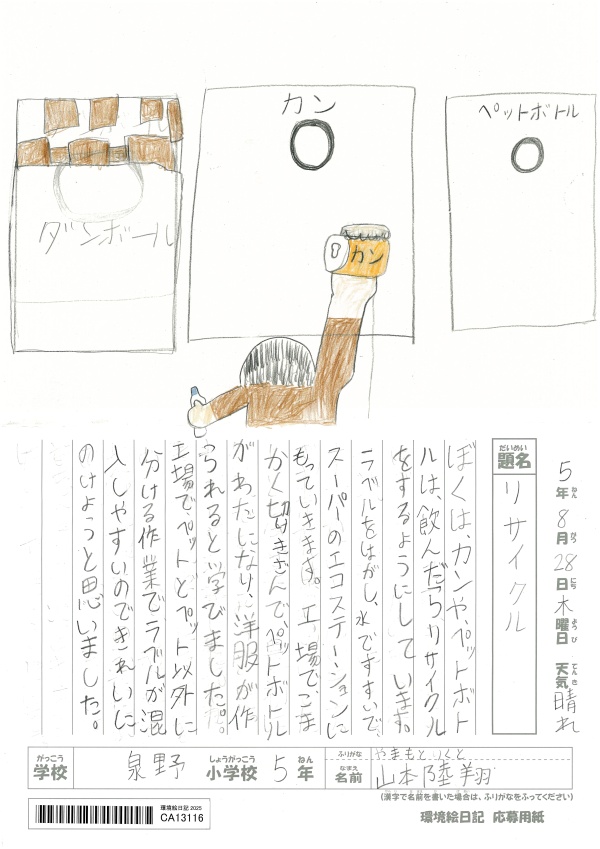 カン
ペットボトル
ダンボール
カン
5年8月28日木曜日 天気晴れ
ねん がつ にち ようび てんき
だいめい
題名
リサイクル
ぼくは、カンや、ペットボト
ルは、飲んだらリサイクル
をするようにしています。
ラベルをはがし、水ですすいで、
スーパーのエコステーションに
もっていきます。工場でこま
かく切きざんで、ペットボトル
がわたになり、洋服が作
られると学びました。
工場でペットとペット以外に
分ける作業でラベルが混
入しやすいのできれいに
のけようと思いました。
がっこう しょうがっこう ねん
学校 泉野 小学校 5年
ふりがな やまもと りくと
なまえ
名前 山本陸翔
(漢字で名前を書いた場合は、ふりがなをふってください)
環境絵日記 2025
CA13116
環境絵日記 応募用紙